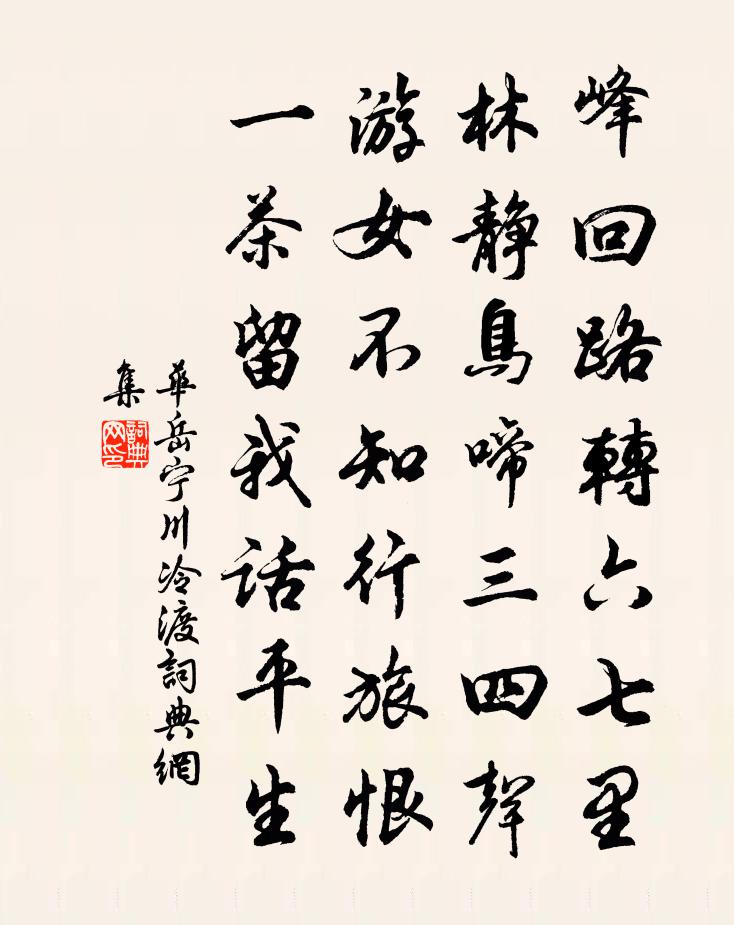 峰回路轉六七里
林静鳥啼三四聲
游女不知行旅恨
一茶留我话平生
華岳宁川冷渡詞典網
集
詞典
网印